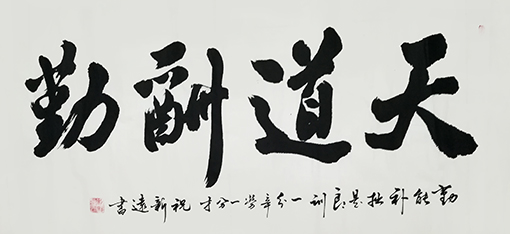 天道酬勤
勤能补拙是良训一分辛劳一分才 祝新远书